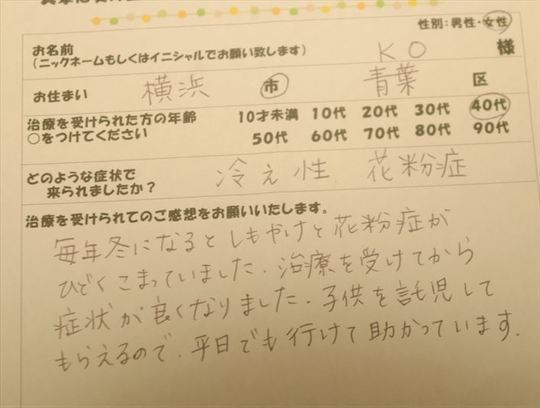 性別：男性・女性
お名前
(ニックネームもしくはイニシャルでお願い致します) KO 様
お住まい 横浜 市 青葉 区
治療を受けられた方の年齢 10才未満 10代 20代 30代 40代
○をつけてください 50代 60代 70代 80代 90代
どのような症状で
来られましたか？ 冷え性 花粉症
治療を受けられてのご感想をお願いいたします。
毎年冬になるとしもやけと花粉症が
ひどくこまっていました.治療を受けてから
症状が良くなりました.子供を託児して
もらえるので、平日でも行けて助かっています.